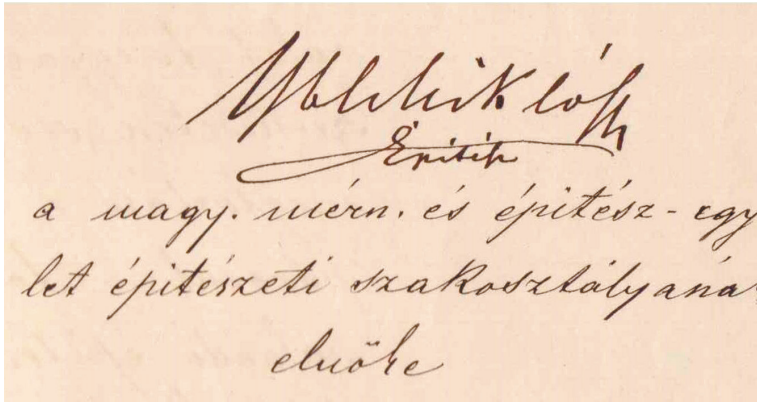 Ybl Miklós
Építész
a magy. mérn. és épitész-egy
let épitészeti szakosztályána
elnöke